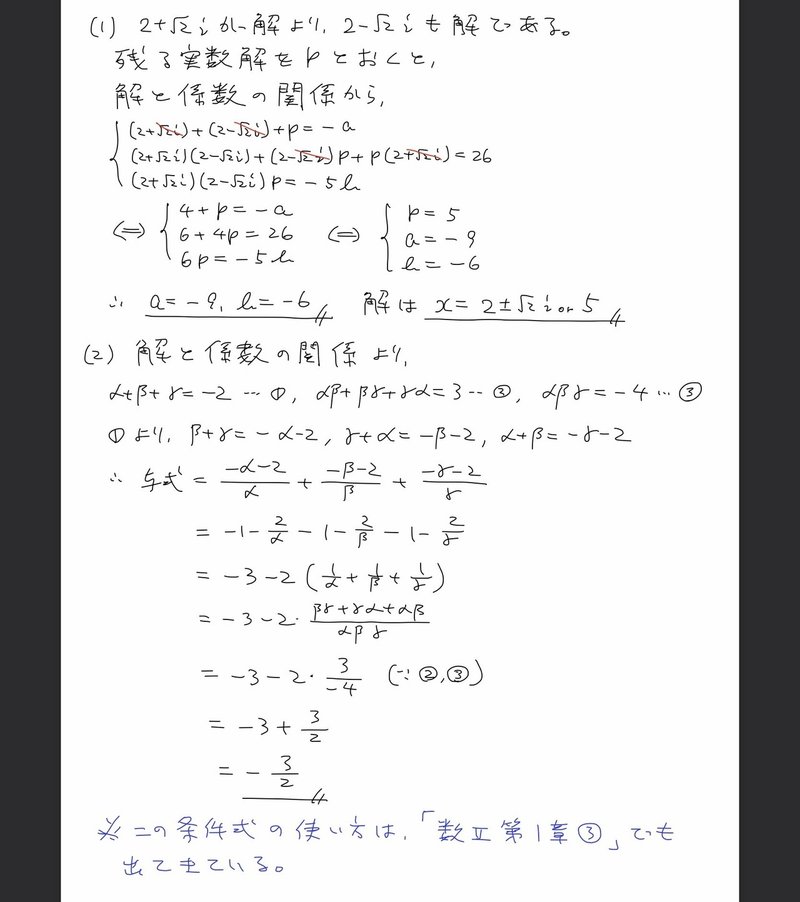 (1) 2+√2 i が一解より、2-√2 i も解である。
残る実数解をpとおくと、
解と係数の関係から、
(2+√2i)+(2-√2i)+p=-a
(2+√2i)(2-√2i)+(2-√2i)p+p(2+√2i)=26
(2+√2i)(2-√2i)p=-5b
⇔ { 4+p=-a ⇔ { p=5
6+4p=26 a=-9
6p=-5b b=-6
∴ a=-9, b=-6 解は x=2±√2 i or 5
(2) 解と係数の関係より、
α+β+γ=-2 … ①, αβ+βγ+γα=3 … ②, αβγ=-4 … ③
①より、β+γ=-α-2, γ+α=-β-2, α+β=-γ-2
∴ 与式 = (-α-2)/α + (-β-2)/β + (-γ-2)/γ
= -1-2/α-1-2/β-1-2/γ
= -3-2(1/α+1/β+1/γ)
= -3-2・(βγ+γα+αβ)/(αβγ)
= -3-2・3/(-4) (∵ ②,③)
= -3+3/2
= -3/2
※この条件式の使い方は、「数Ⅱ第1章③」でも
出てきている。